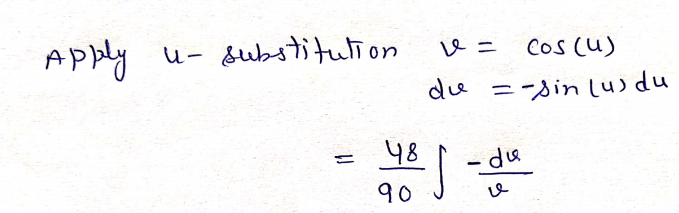 Apply u- substitution v = cos(u)
dv = -sin(u) du
= 48/90 ∫ -dv/v